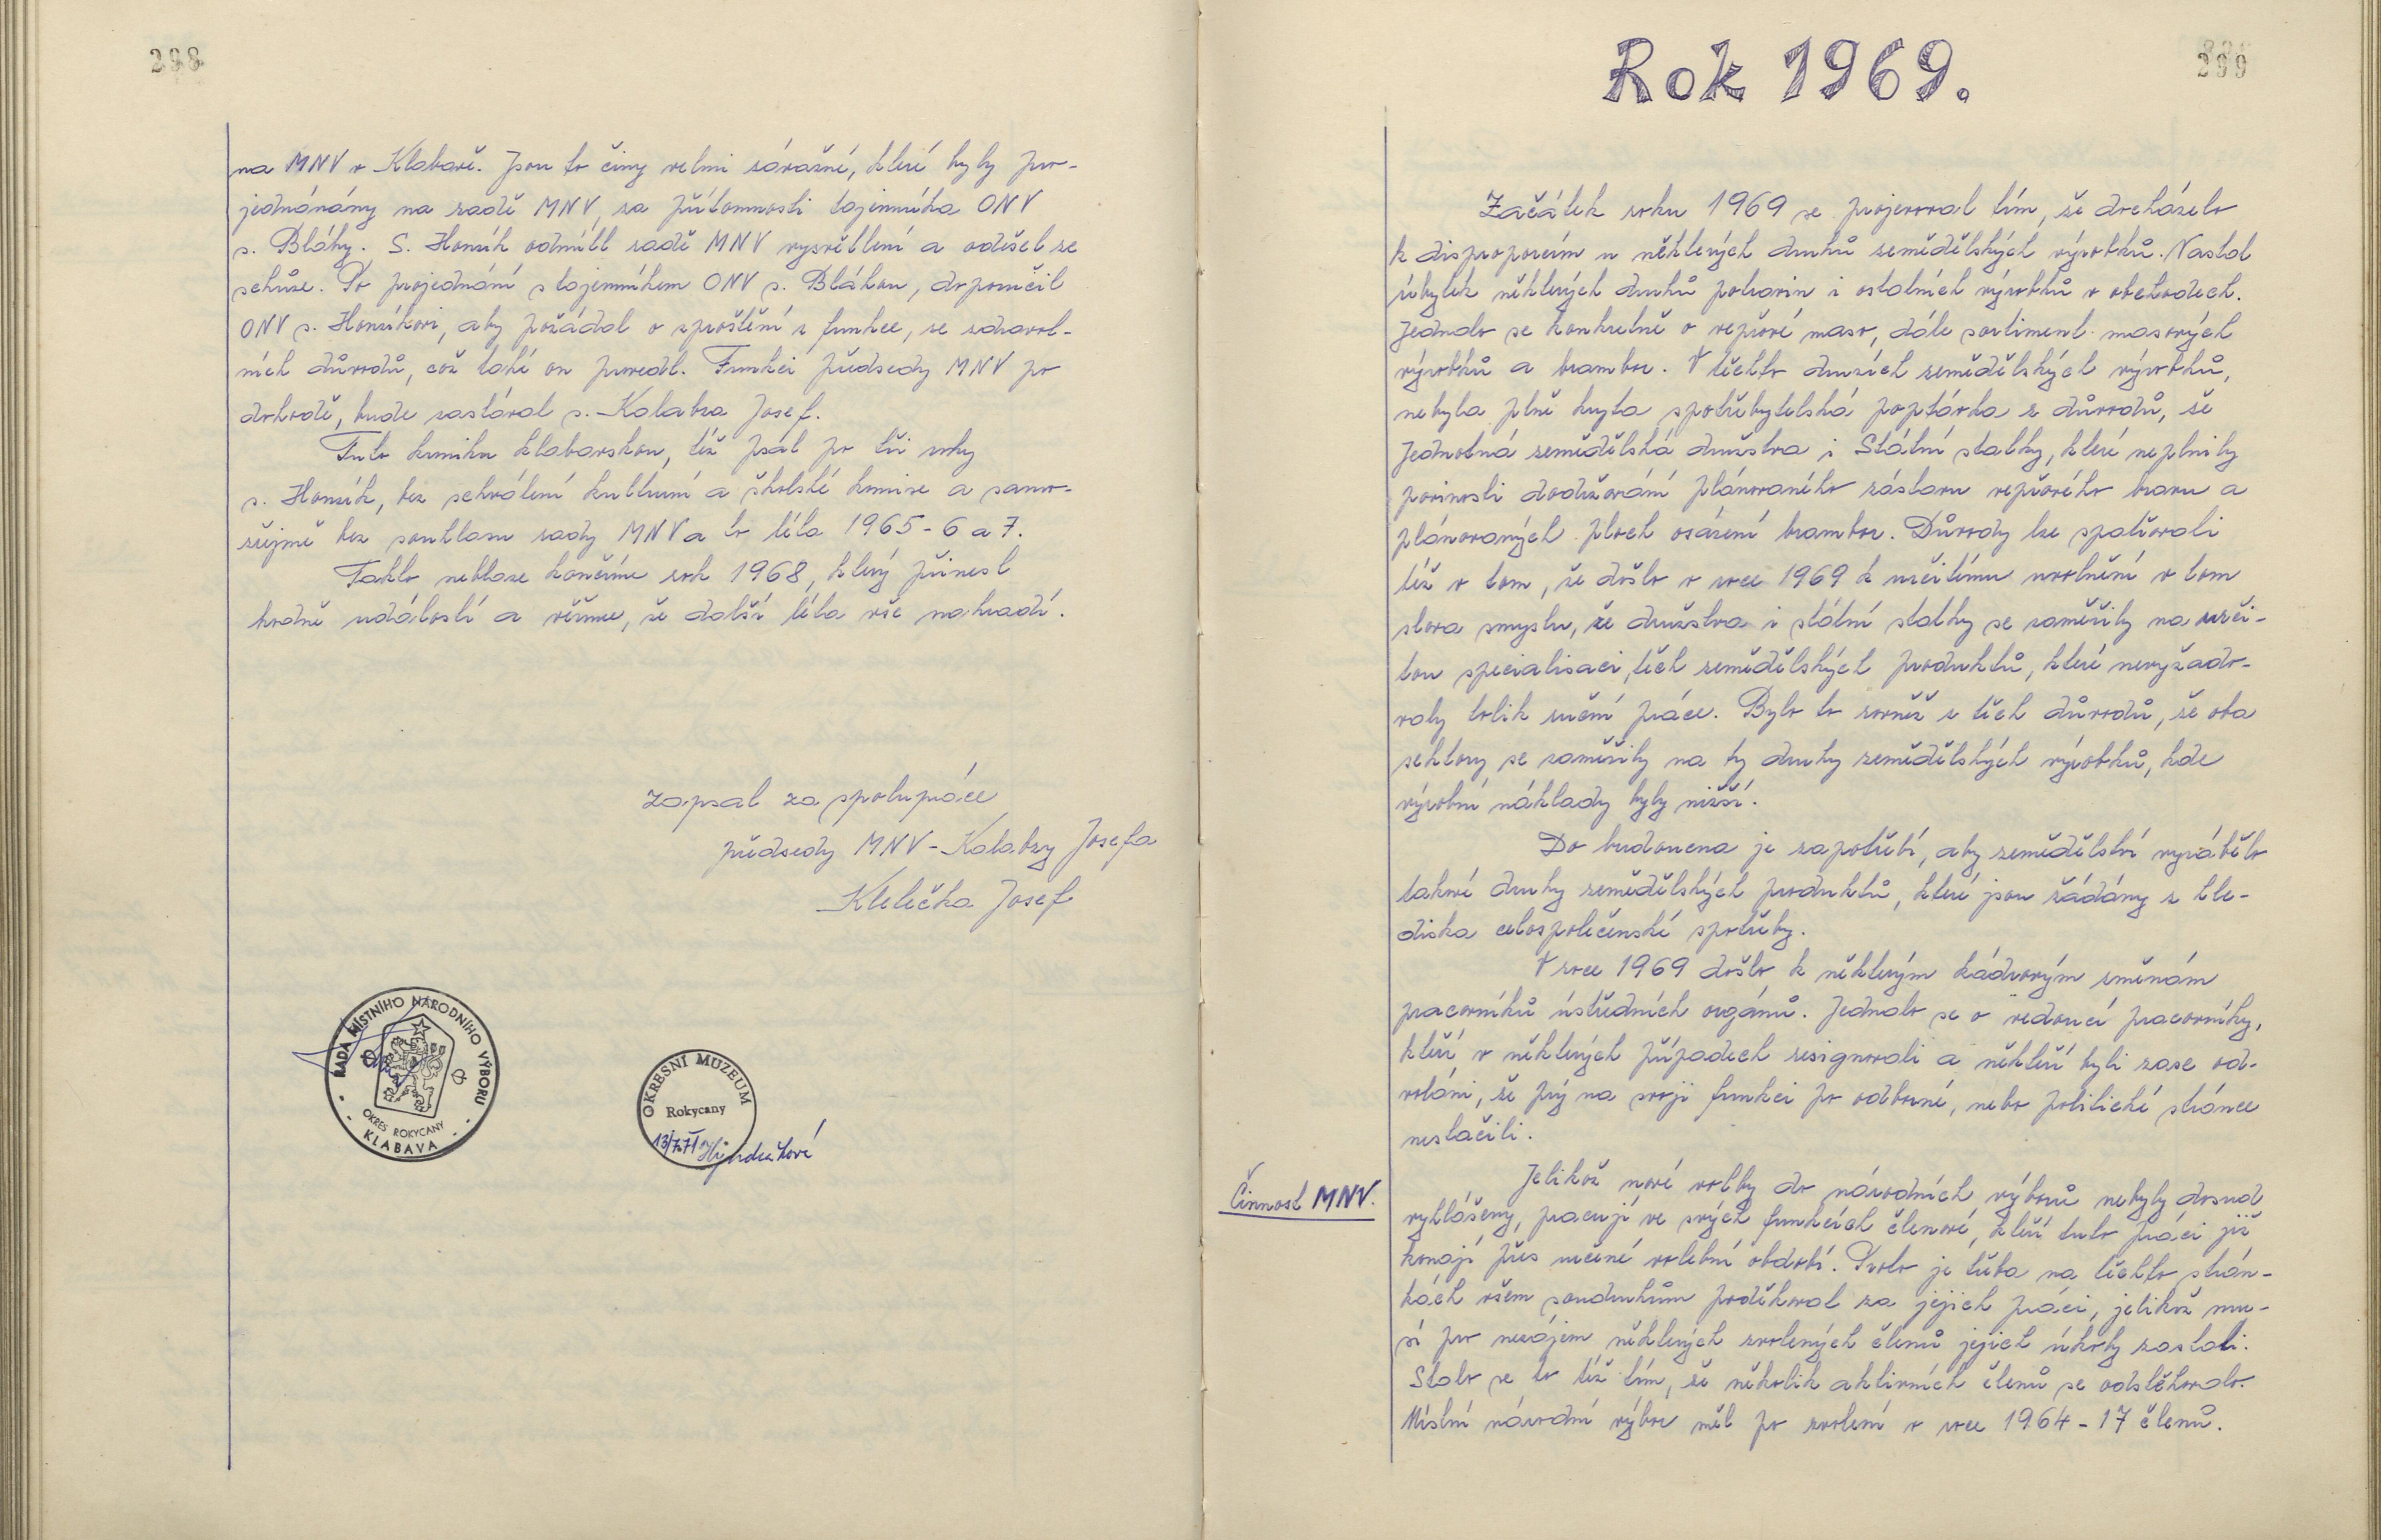 298
na MNV v Klabavě. Jsou to činy velmi závažné, které byly pro-
jednávány na radě MNV, za přítomnosti tajemníka ONV
s. Bláhy. S. Honzík odmítl radě MNV vysvětlení a odešel ze
schůze. Po projednání s tajemníkem ONV s. Bláhou, doporučil
ONV s. Honzíkovi, aby požádal o zproštění z funkce, ze zdravot-
ních důvodů, což také on provedl. Funkci předsedy MNV po
dohodě, bude zastávat s. Kalabza Josef.
Tuto kroniku klabavskou, též psal po tři roky
s. Honzík, bez schválení kulturní a školské komise a samo-
zřejmě bez souhlasu rady MNV a to léta 1965-6 a 7.
Takto neblaze končíme rok 1968, který přinesl
hodně událostí a věříme, že další léta vše nahradí.
zapsal za spolupráce
předsedy MNV - Kalabzy Josefa
Klelečka Josef
RADA MÍSTNÍHO NÁRODNÍHO VÝBORU
OKRES ROKYCANY
KLABAVA
OKRESNÍ MUZEUM
Rokycany
13/7.71
299
Rok 1969.
Začátek roku 1969 se projevoval tím, že docházelo
k disproporcím u některých druhů zemědělských výrobků. Nastal
úbytek některých druhů potravin i ostatních výrobků v obchodech.
Jednalo se konkretně o vepřové maso, dále sortiment masových
výrobků a brambor. V těchto druzích zemědělských výrobků,
nebyla plně kryta spotřebytelská poptávka z důvodů, že
Jednotná zemědělská družstva i Státní statky, které neplnily
povinosti dodržování plánovaného zástavu vepřového bravu a
plánovaných ploch osázení brambor. Důvody lze spatřovati
též v tom, že došlo v roce 1969 k určitému uvolnění v tom
slova smyslu, že družstva i státní statky se zaměřily na urči-
tou specialisaci, těch zemědělských produktů, které nevyžado-
valy tolik ruční práce. Bylo to rovněž z těch důvodů, že oba
sektory se zaměřily na ty druhy zemědělských výrobků, kde
výrobní náklady byly nižší.
Do budoucna je zapotřebí, aby zemědělství vyrábělo
takové druhy zemědělských produktů, které jsou žádány z hle-
diska celospolečenské spotřeby.
V roce 1969 došlo k některým kádrovým změnám
pracovníků ústředních orgánů. Jednalo se o vedoucí pracovníky,
kteří v některých případech resignovali a někteří byli zase od-
voláni, že prý na svoji funkci po odborné, nebo politické stránce
nestačili.
Činnost MNV.
Jelikož nové volby do národních výborů nebyly dosud
vyhlášeny, pracují ve svých funkcích členové, kteří tuto práci již
konají přes určené volební období. Proto je třeba na těchto strán-
kách všem soudruhům poděkovat za jejich práci, jelikož mu-
sí pro nezájem některých zvolených členů jejich úkoly zastati.
Stalo se to též tím, že několik aktivních členů se odstěhovalo.
Místní národní výbor měl po zvolení v roce 1964 - 17 členů.